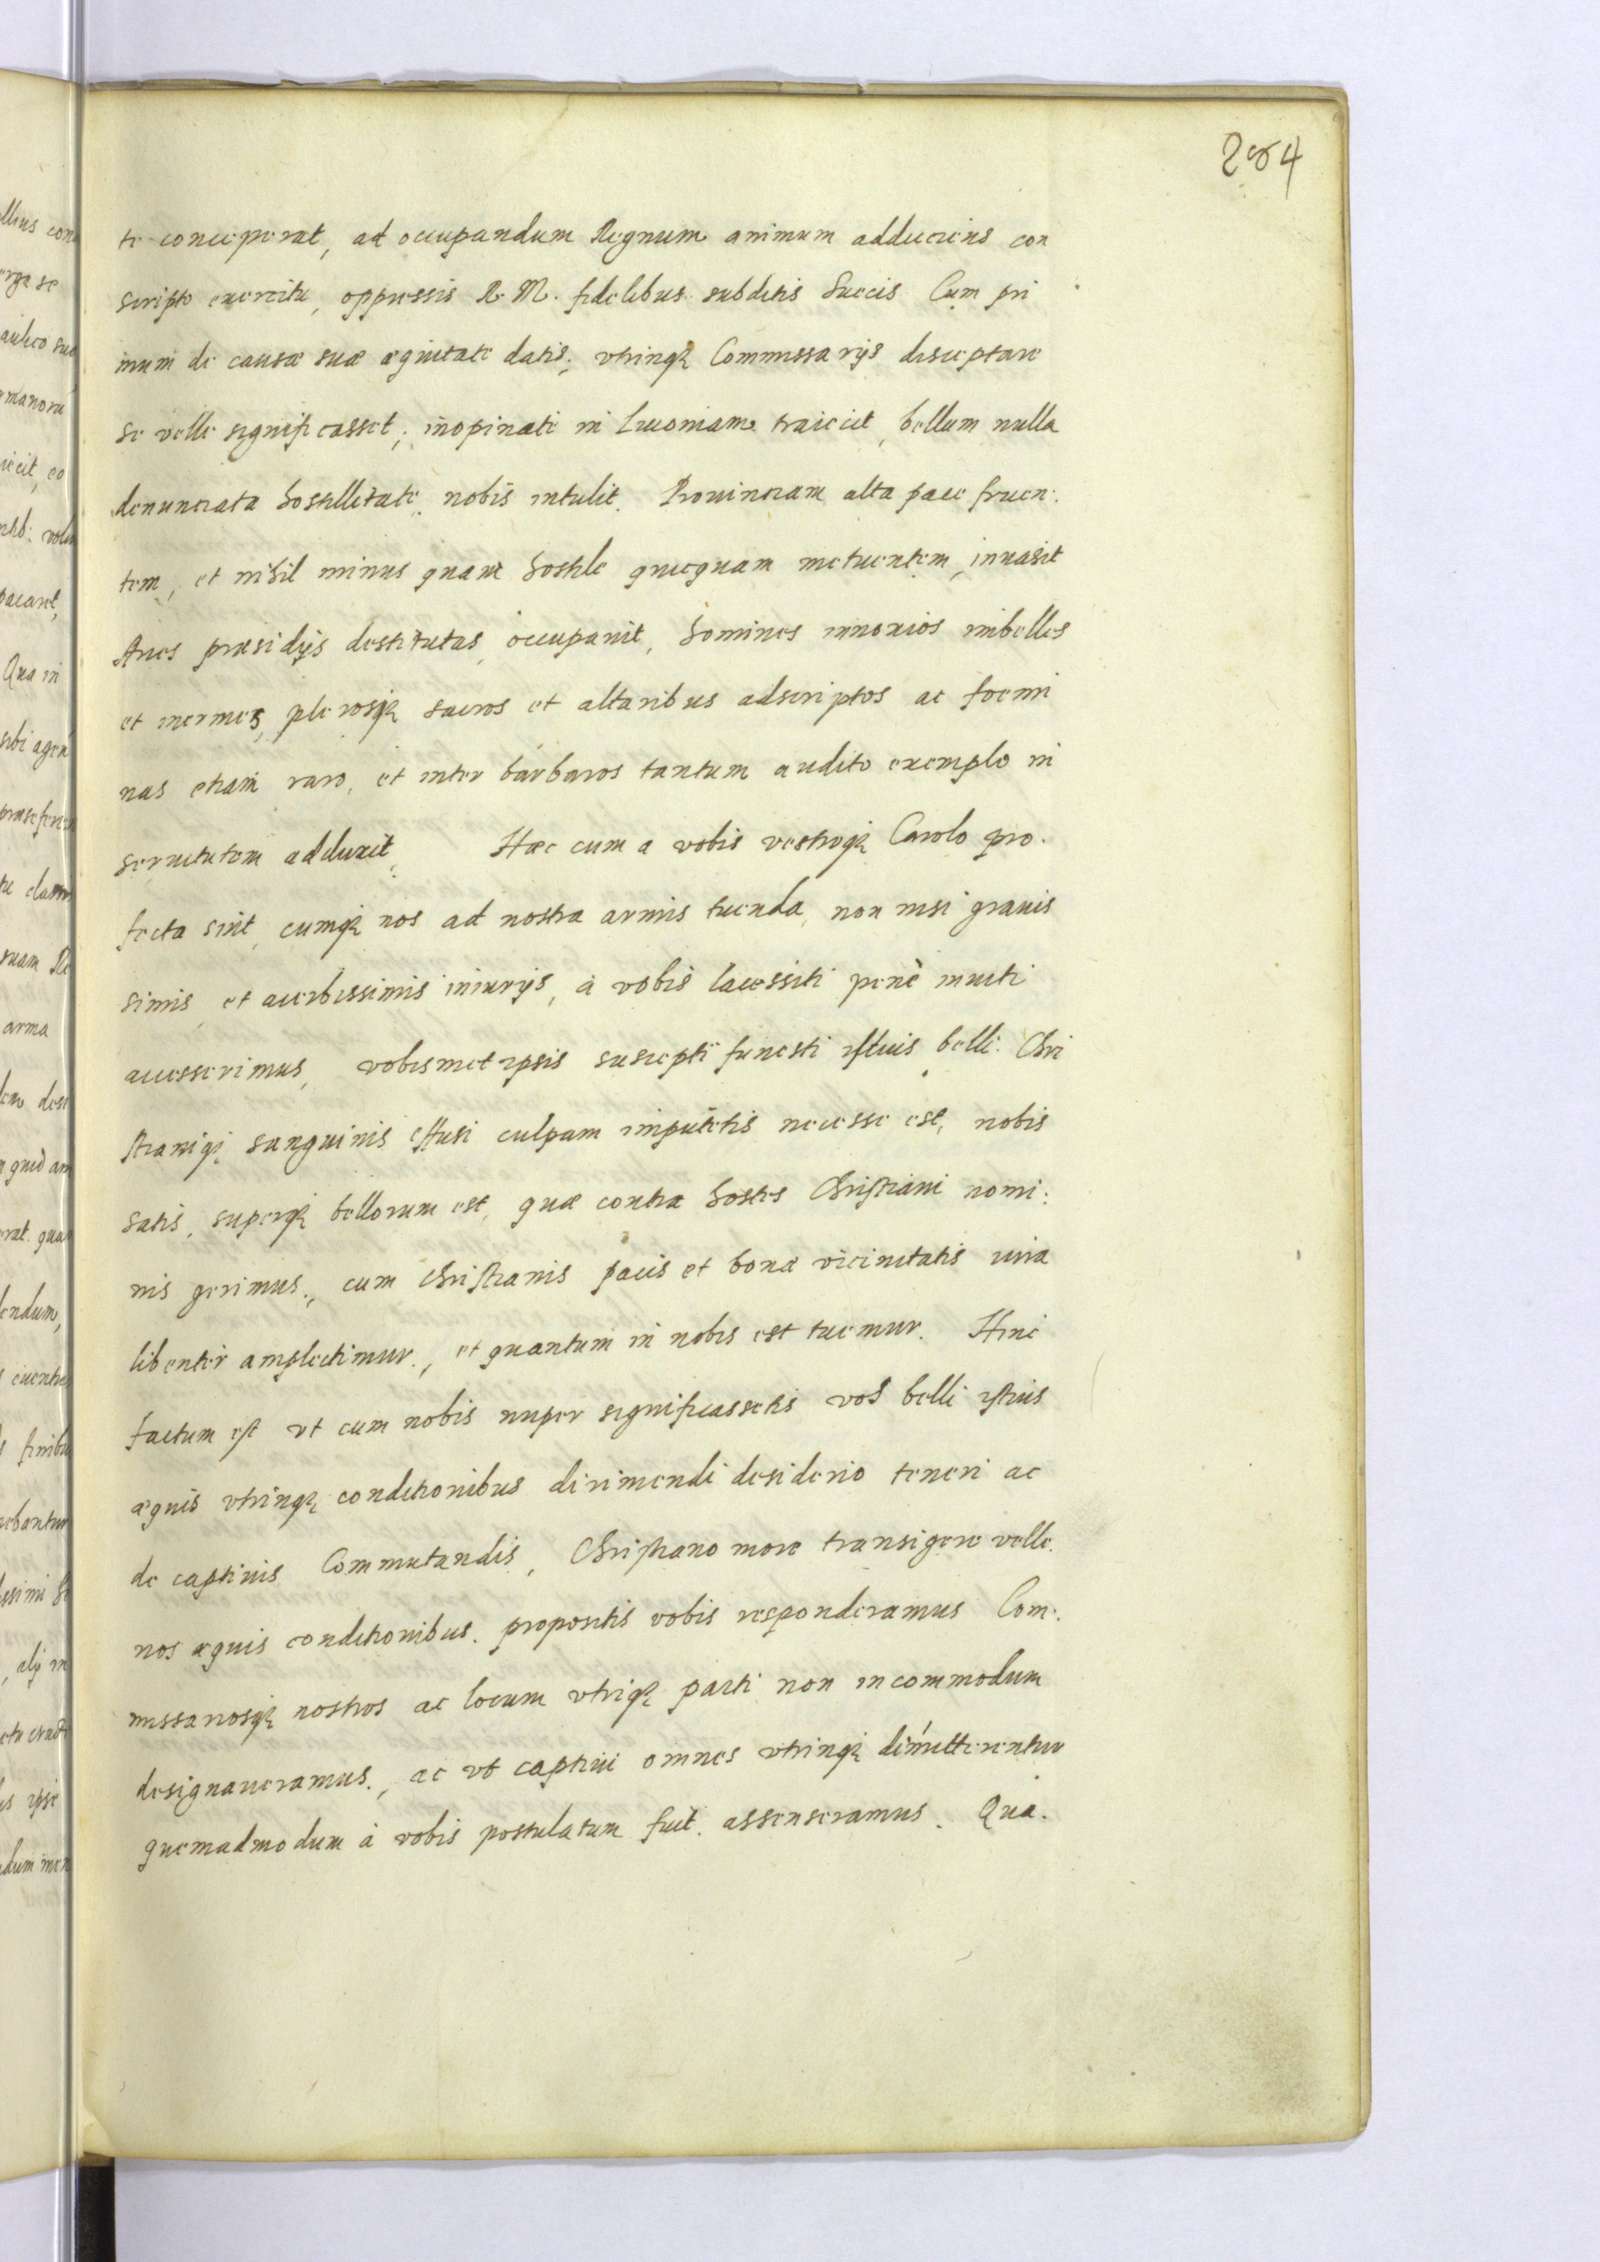 284
te conceperat, ad occupandum Regnum animum adduciens con
scripto exercitu, oppressis R. M. fidelibus subditis Suecis Cum pri
mum de causæ suæ æquitate datis, vtrinqꝫ Commissarijs disceptare
se velle significasset; inopinate in Liuoniam traiecit, bellum nulla
denunciata hostillitate nobis intulit. Prouinciam alta pace fruen:
tem, et nihil minus quam hostile quicquam metuentem, inuasit
Arces præsidijs destitutas, occupauit, homines innoxios imbelles
et inermes, plerosqꝫ sacros et altaribus adscriptos ac foemi
nas etiam raro, et inter barbaros tantum audito exemplo in
seruitutem adduxit. Hæc cum a vobis vestroqꝫ Carolo pro.
fecta sint, cumqꝫ nos ad nostra armis tuenda, non nisi grauis
simis et acerbissimis iniurijs, à vobis lacessiti penè inuiti
accesserimus, vobismet ipsis suscepti funesti istius belli. Chri
stianiqꝫ sanguinis effusi culpam imputetis necesse est, nobis
satis, superqꝫ bellorum est, quæ contra hostes Christiani nomi:
nis gerimus., cum Christianis pacis et bonæ vicinitatis iura
libenter amplectimur., et quantum in nobis est tuemur. Hinc
factum est vt cum nobis nuper significassetis vos belli istius
æquis vtrinqꝫ conditionibus dirimendi desiderio teneri ac
de captiuis Commutandis, Christiano more transigere velle.
nos æquis conditionibus. propositis vobis responderamus Com:
missariosqꝫ nostros ac locum vtriqꝫ parti non incommodum
designaueramus., ac vt captiui omnes vtrinqꝫ dimitterentur
quemadmodum à vobis postulatum fuit. assenseramus. Qua.